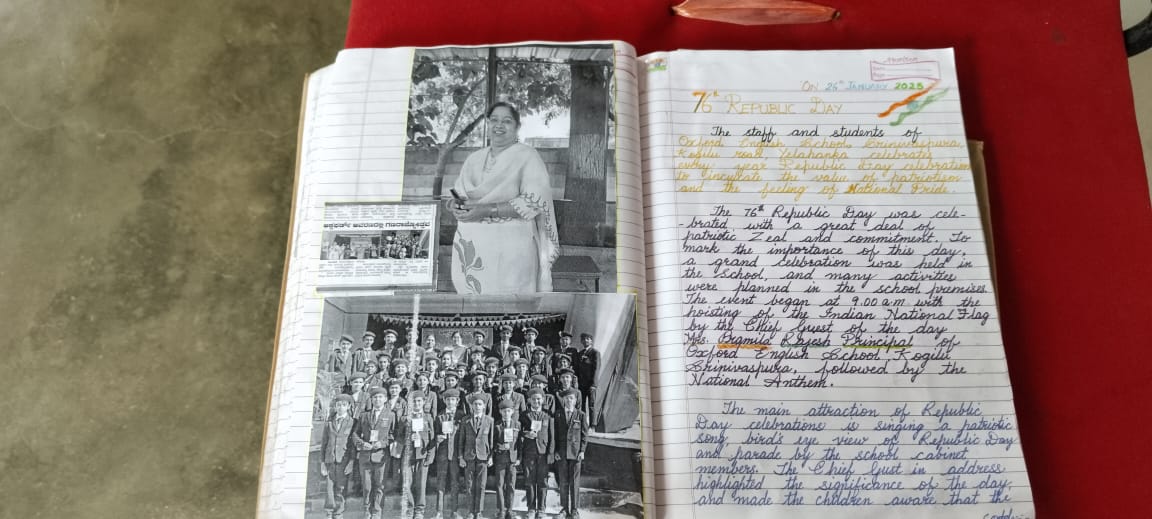 ಆಕ್ಸ್‌ಫರ್ಡ್
ON 26th JANUARY 2025
76th REPUBLIC DAY
The staff and students of
Oxford English School, Srinivaspura,
Kogilu road, Yelahanka celebrates
every year Republic Day celebration
to inculcate the value of patriotism
and the feeling of National Pride.
The 76th Republic Day was cele-
-brated with a great deal of
patriotic Zeal and commitment. To
mark the importance of this day,
a grand celebration was held in
the School, and many activities
were planned in the school premises.
The event began at 9.00 a.m with the
hoisting of the Indian National Flag
by the Chief Guest of the day
Mrs. Pramila Rajesh Principal of
Oxford English School, Kogilu
Srinivaspura, followed by the
National Anthem.
The main attraction of Republic
Day celebrations is singing a patriotic
song, bird's eye view of Republic Day
and parade by the school cabinet
members. The Chief Gust in address
highlighted the significance of the day,
and made the children aware that the
contd...